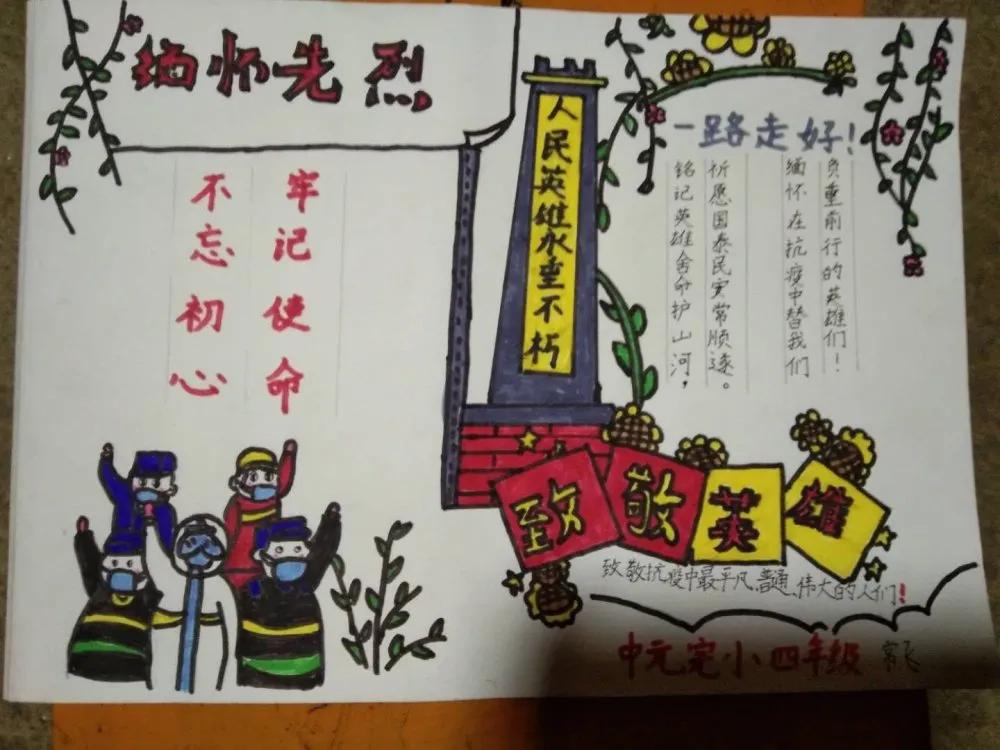 缅怀先烈
不忘初心
牢记使命
人民英雄永垂不朽
一路走好！
铭记英雄舍命护山河，
祈愿国泰民安常顺遂。
缅怀在抗疫中替我们
负重前行的英雄们！
致敬英雄
致敬抗疫中最平凡、普通、伟大的人们！
中元完小四年级 常飞